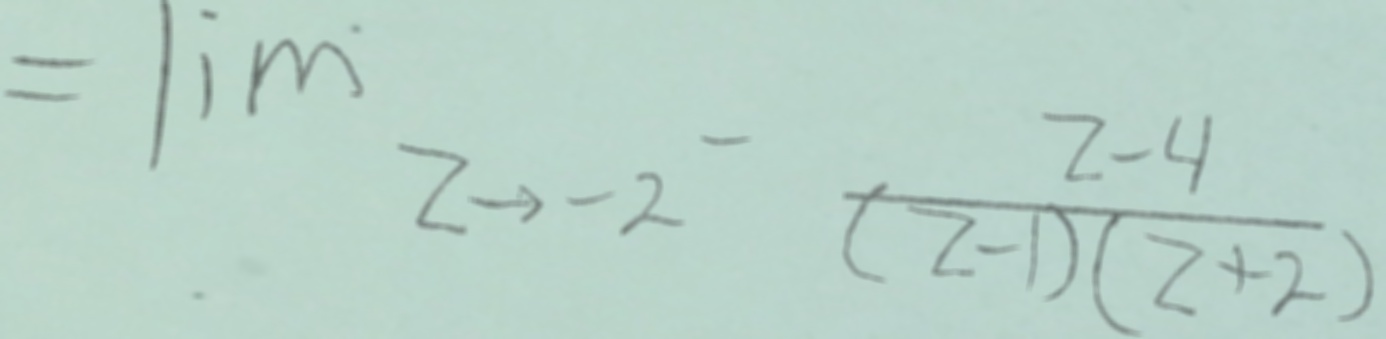 = lim z→-2⁻ z-4/(z-1)(z+2)